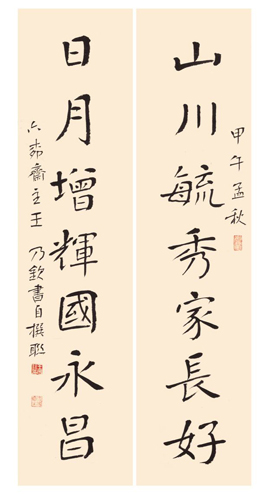 甲午孟秋
山川毓秀家長好
日月增輝國永昌
六希齋主王乃欽書自撰聯